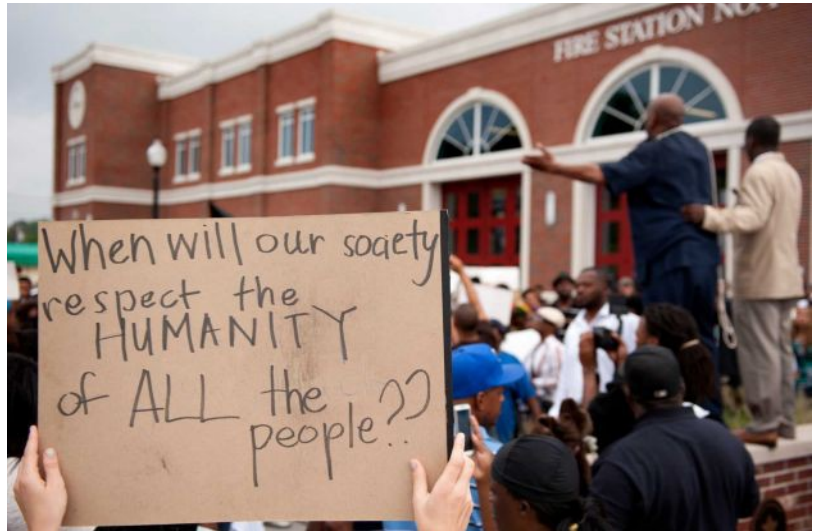 FIRE STATION NO.
When will our society
respect the
HUMANITY
of ALL the
people??